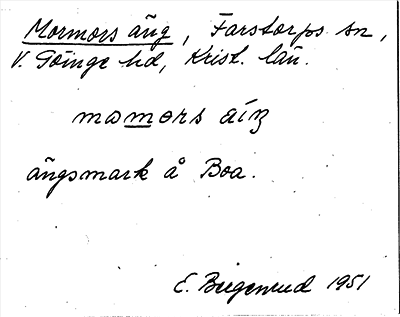 Mormors äng, Farstorps sn,
V. Göinge hd, Krist. län.
mamors äiŋ
ängsmark å Boa.
E. Bergemud 1951